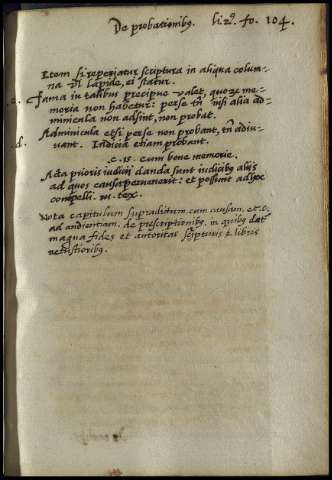 De probationibus. li. 2. fo. 104.
Item si reperiatur scriptura in aliqua colum-
na vl lapide, ei statur.
c. Fama in talibus precipue valet, quorum me-
moria non habetur: per se tn nisi alia ad-
minicula non adsint, non probat.
d. Adminicula etsi per se non probant, tn adiu-
vant. Indicia etiam probant.
c. 15. cum bone memorie.
Acta prioris iudicij danda sunt iudicibus alijs
ad quos causa pervenerit: et possunt ad hoc
compelli.
Nota capitulum supradictum cum causam, et. c.
ad audientiam. de prescriptionibus. in quibus datur
magna fides et autoritas scripturis et libris
vetustioribus.